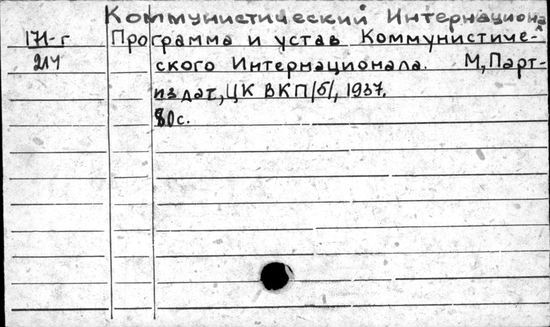 Коммунистический Интернационал
171-г Программа и устав Коммунистиче-
214 ского Интернационала. М, Парт-
издат, ЦК ВКП/б/, 1937.
80с.